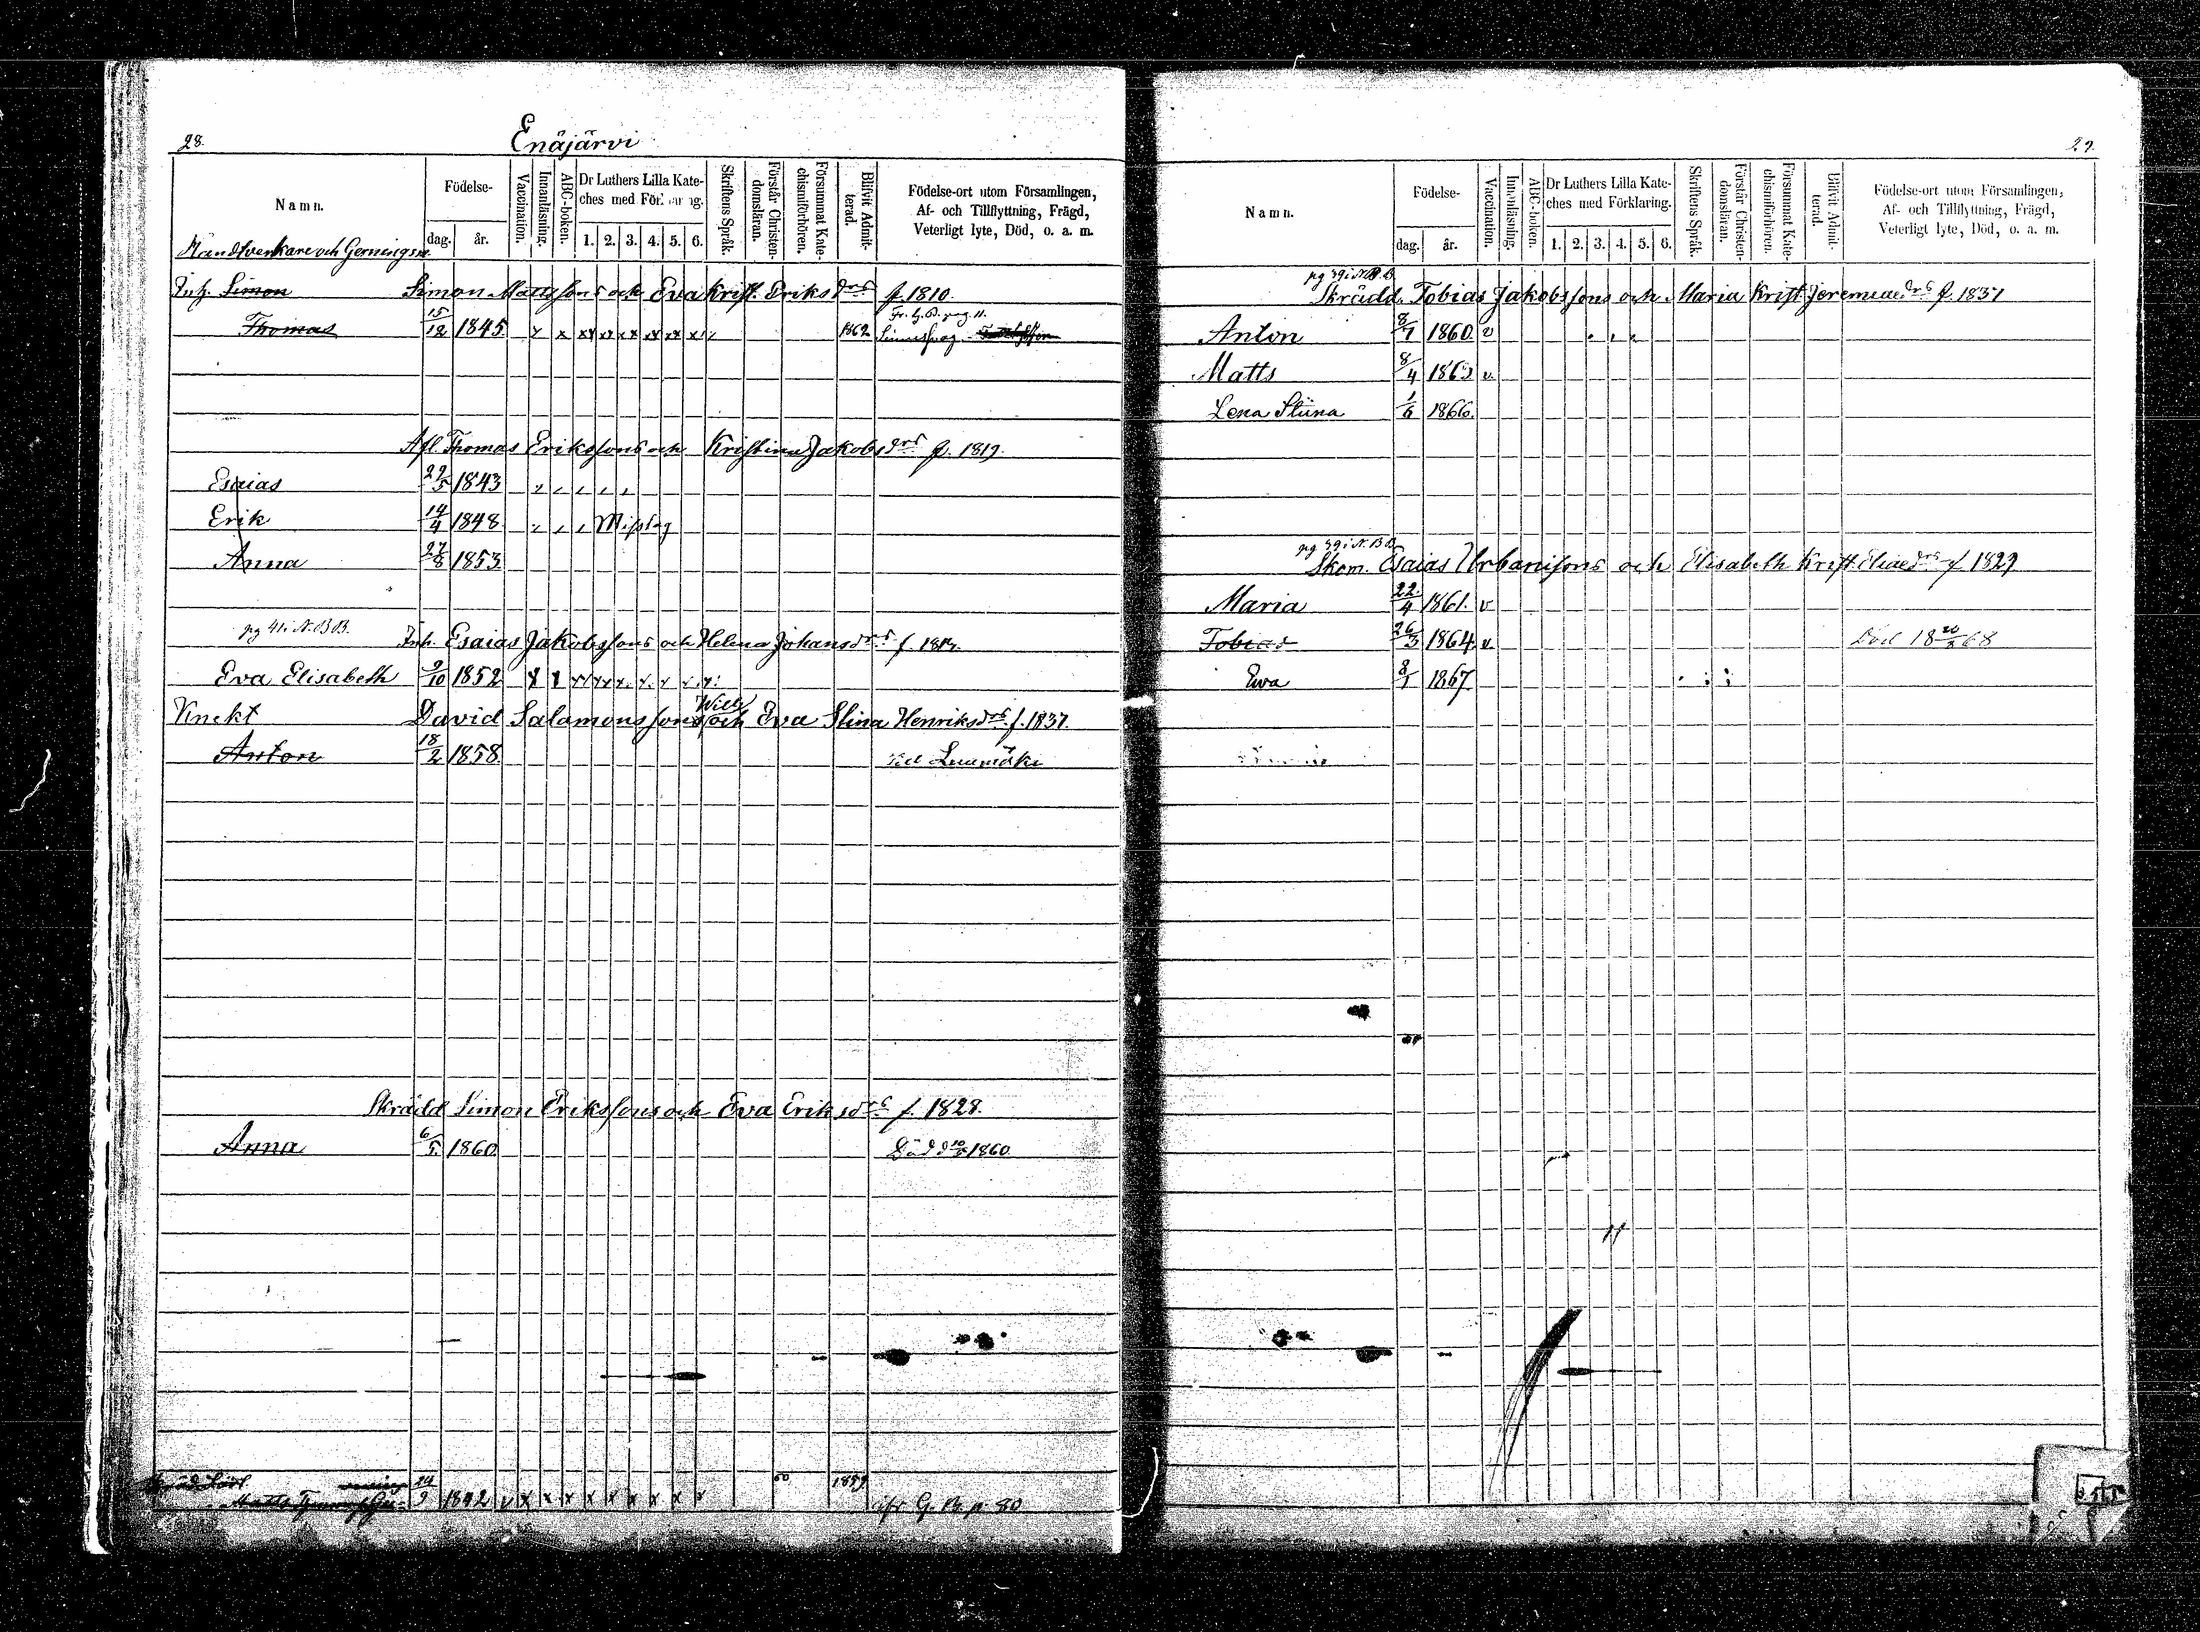 28.
Enäjärvi
Namn.
Födelse-
dag. år.
Vaccination.
Innanläsning.
ABC-boken.
Dr Luthers Lilla Kate-
ches med För
1. 2. 3. 4. 5. 6.
Skriftens Språk.
Förstår Christen-
domsläran.
Försummat Kate-
chismiförhören.
Blifvit Admit-
terad.
Födelse-ort utom Församlingen,
Af- och Tillflyttning, Frägd,
Veterligt lyte, Död, o. a. m.
Handtverkare och Gerningsm
Inh. Simon Simon Mattssons och Eva Krist. Eriksdrs f. 1810.
Thomas 15/12 1845 x x xx xx xx xx xx x 1862 Fr. G. B. pag. 11.
Afl. Thomas Erikssons och Kristina Jakobsdrs f. 1819.
Esaias 27/5 1843
Erik 14/4 1848 Misstag
Anna 27/8 1853
pg 41 i N. B B.
Inh. Esaias Jakobssons och Helena Johansdrs f.
Eva Elisabeth 9/10 1852
Knekt David Salomonssons och Eva Stina Henriksdrs f. 1837.
Anton 18/2 1858 Luumäki
Skrädd Simon Erikssons och Eva Eriksdrs f. 1828.
Anna 6/5 1860 Död d 10/5 1860.
24/9 1842 v x x x x x x x x x 60 1859
Matts G. B. p. 80
29.
Namn.
Födelse-
dag. år.
Vaccination.
Innanläsning.
ABC-boken.
Dr Luthers Lilla Kate-
ches med Förklaring.
1. 2. 3. 4. 5. 6.
Skriftens Språk.
Förstår Christen-
domsläran.
Försummat Kate-
chismiförhören.
Blifvit Admit-
terad.
Födelse-ort utom Församlingen,
Af- och Tillflyttning, Frägd,
Veterligt lyte, Död, o. a. m.
pg 39 i N. B B.
Skrädd. Tobias Jakobssons och Maria Krist. Jeremiaedrs f. 1831
Anton 8/7 1860. v
Matts 8/4 1863 v.
Lena Stina 1/6 1866.
pg 39 i N. B B.
Skom. Esaias Urbanssons och Elisabeth Krist. Eliaedrs f 1829
Maria 22/4 1861. v
Tobias 26/3 1864. v. Död 18 20/2 68
Eva 8/1 1867